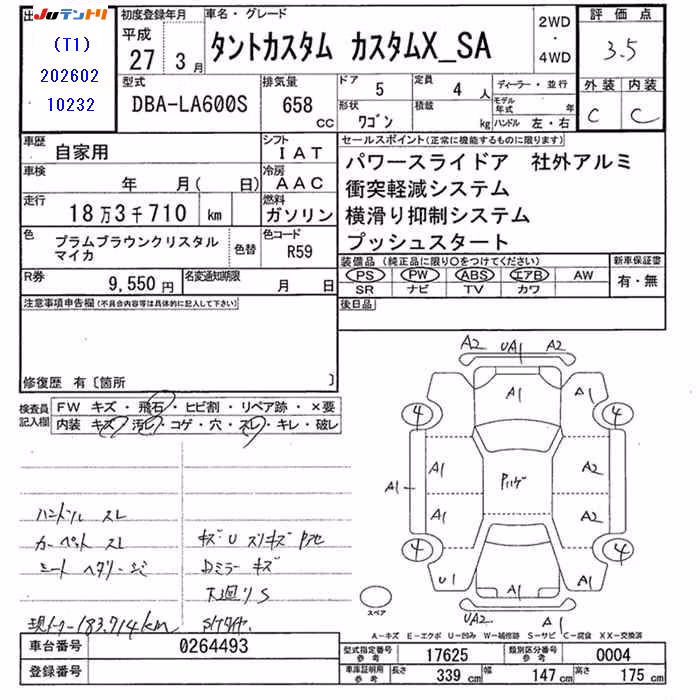 出 JUテントリ
(T1)
202602
10232
初度登録年月
平成
27年 3月
車名・グレード
タントカスタム カスタムX_SA
2WD
・
4WD
評価点
3.5
外装 内装
C C
型式
DBA-LA600S
排気量
658 cc
ドア 5
定員 4 人
形状 ワゴン
積載 kg
ディーラー・並行
モデル年式 年
ハンドル 左・右
車歴 自家用
シフト IAT
車検 年 月( 日)
冷房 AAC
走行 18万3千710 km
燃料 ガソリン
色 プラムブラウンクリスタル
マイカ
色替
色コード R59
R券 9,550円
名変通知期限 月 日
セールスポイント(正常に機能するものに限ります)
パワースライドア 社外アルミ
衝突軽減システム
横滑り抑制システム
プッシュスタート
装備品(純正品に限り○をつけてください)
PS PW ABS エアB AW
SR ナビ TV カワ
新車保証書
有・無
後日品
注意事項申告欄(不具合内容等は具体的に記入して下さい)
修復歴 有〔箇所 〕
検査員
記入欄
FW キズ・飛石・ヒビ割・リペア跡・×要
内装 キズ・汚レ・コゲ・穴・スレ・キレ・破レ
ハンドル スレ
カーペット スレ
シート ヘタリ
キズ・U スリキズ
Dミラー キズ
下廻りS
現メーター183,714km
A2 UA1 A2
A1 A1
4 4
A1 A1 A2
A1 A2
4 4
U1 A1 A1
UA2 A1
スペア
A-キズ E-エクボ U-凹み W-補修跡 S-サビ C-腐食 XX-交換済
車台番号 0264493
登録番号
型式指定番号 参考 17625
類別区分番号 参考 0004
車庫証明用 参考 長さ 339 cm 幅 147 cm 高さ 175 cm